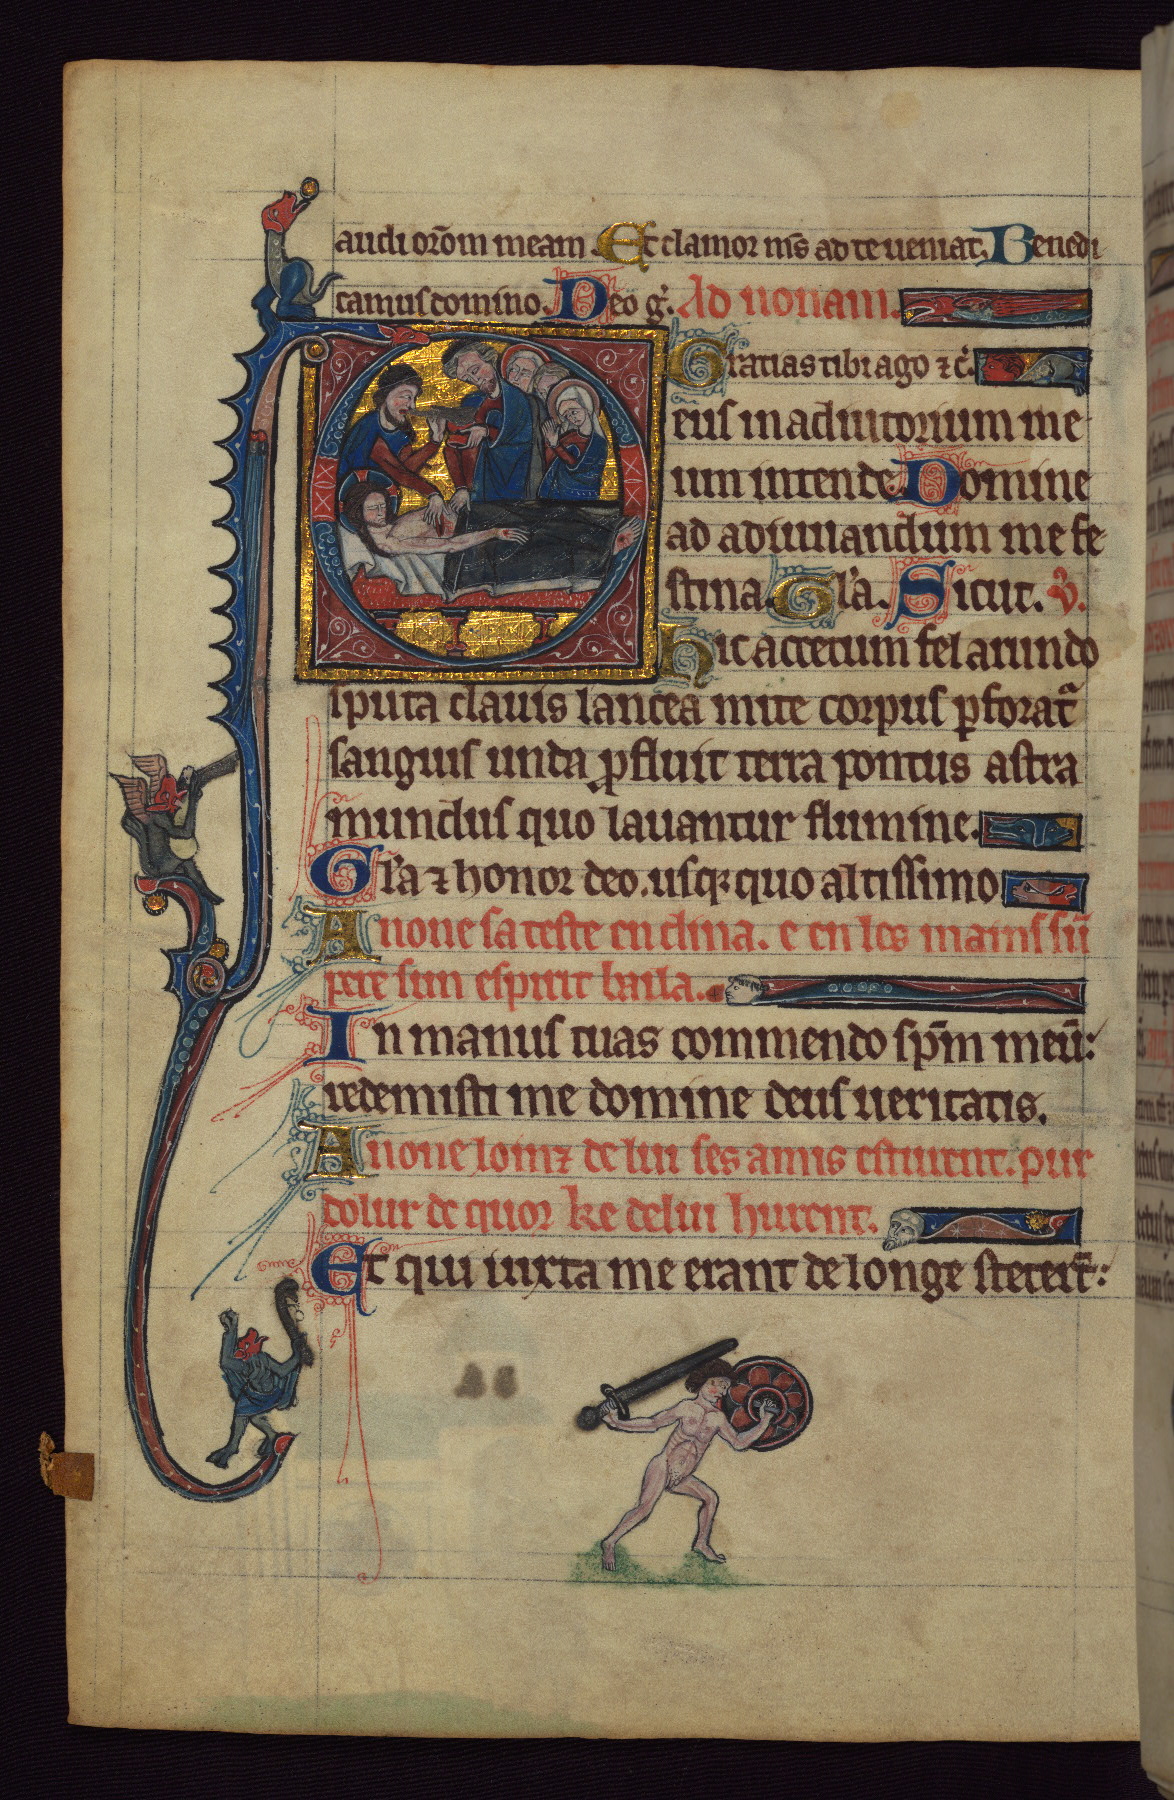 audi orōm meam. Et clamor mēs ad te ueniat. Benedi
camus domino. Deo g̃. Ad nonam.
Gratias tibi ago ⁊ c̃.
eus in adiutorium me
um intende. Domine
ad adiuuandum me fe
stina. Gl̃a. Sicut. v̄.
Hic accetum fel arundo
sputa clauis lancea mite corpus ꝑforat᷑
sanguis unda ꝓfluit terra pontus astra
mundus quo lauantur flumine.
Gl̃a ⁊ honor deo. usq; quo altissimo
A none sa teste en clina. e en les mains sū
pere sun espirit baila.
In manus tuas commendo sp̄m meū:
redemisti me domine deus ueritatis.
A none loinz de lui ses amis esturent. pur
dolur de quor ke de lui hurent.
Et qui iuxta me erant de longe stetert̄: